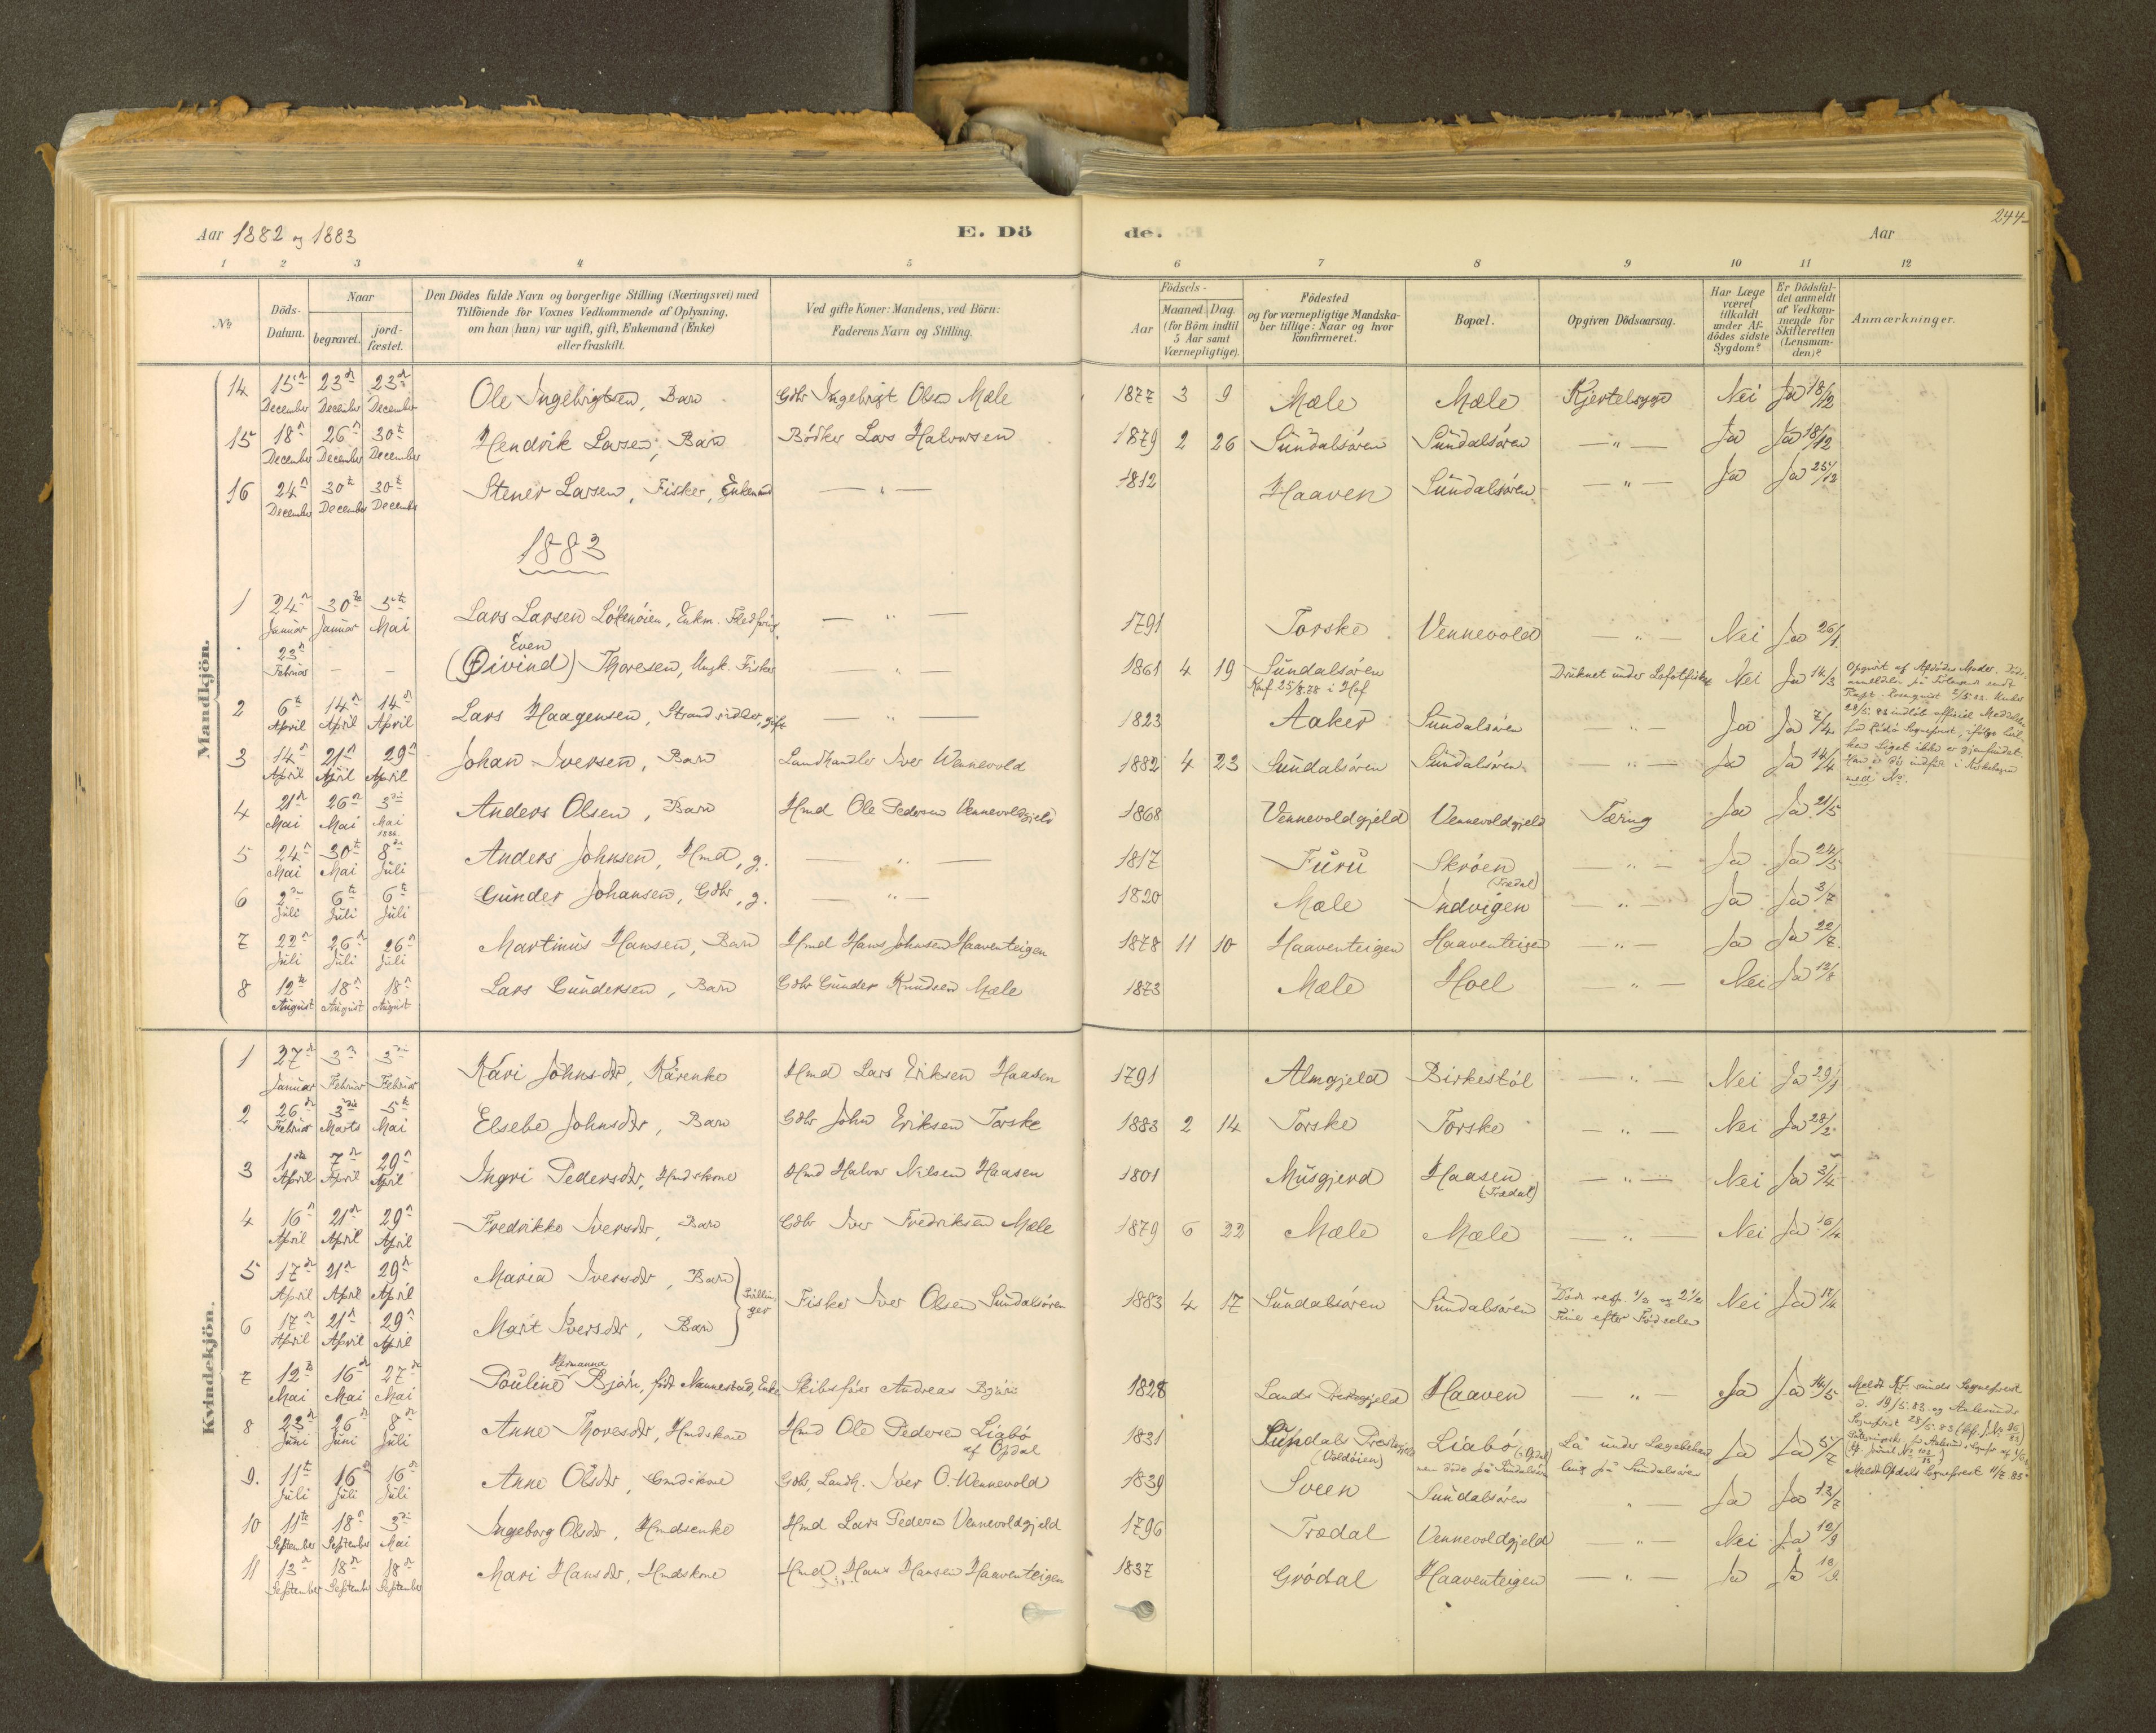 244
Aar 1882 og 1883 E. Dö de. Aar
1 2 3 4 5 6 7 8 9 10 11 12
No
Döds-Datum.
Naar
begravet.
jord-fæstet.
Den Dödes fulde Navn og borgerlige Stilling (Næringsvei) med
Tilföiende for Voxnes Vedkommende af Oplysning,
om han (hun) var ugift, gift, Enkemand (Enke)
eller fraskilt.
Ved gifte Koner: Mandens, ved Börn:
Faderens Navn og Stilling.
Födsels-
Aar
Maaned. Dag.
(for Börn indtil
5 Aar samt
Værnepligtige).
Födested
og for værnepligtige Mandska-
ber tillige: Naar og hvor
konfirmeret.
Bopæl.
Opgiven Dödsaarsag.
Har Læge
været
tilkaldt
under Af-
dödes sidste
Sygdom?
Er Dödsfal-
det anmeldt
af Vedkom-
mende for
Skifteretten
(Lensman-
den)?
Anmærkninger.
Mandkjön.
14 15n December 23de December 23de December Ole Ingebrigtsen, Barn Gdbr Ingebrigt Olsen Mæle 1877 3 9 Mæle Mæle Kjertelsyge Nei Ja 18/12
15 18n December 26n December 30te December Hendrik Larsen, Barn Bödker Lars Halvorsen 1879 2 26 Sundalsören Sundalsören — " — Ja Ja 18/12
16 24n December 30te December 30te December Stener Larsen, Fisker, Enkemand — " — 1812 Haaven Sundalsören — " — Ja Ja 25/12
1883
1 24n Januar 30te Januar 5te Mai Lars Larsen Lökenöien, Enkm. — " — 1791 Torske Vennevold — " — Nei Ja 26/1
23n Februar — — Even
(Öivind) Thoresen, Ungk. Fisker — " — 1861 4 19 Sundalsören
Konf. 25/8.78 i Hof Druknet under Lofotfisket Nei Ja 14/3 Opgivet af Afdödes Moder.
2 6te April 14n April 14n April Lars Haagensen, Strandsidder, gift — " — 1823 Aaker Sundalsören — " — Ja Ja 7/4
3 14n April 21n April 29n April Johan Iversen, Barn Landhandler Iver Wennevold 1882 4 23 Sundalsören Sundalsören — " — Ja Ja 14/4
4 21n Mai 26n Mai 3die Mai 1884 Anders Olsen, Barn Hmd Ole Pedersen Vennevoldgjeld 1868 Vennevoldgjeld Vennevoldgjeld Tæring Ja Ja 21/5
5 24n Mai 30te Mai 8de Juli Anders Johnsen, Hmd, g. — " — 1817 Furu Skröen
(Trædal) — " — Ja Ja 24/5
6 2den Juli 6te Juli 6te Juli Gunder Johansen, Gdbr, g. — " — 1820 Mæle Indvigen — " — Ja Ja 3/7
7 22n Juli 26n Juli 26n Juli Martinus Hansen, Barn Hmd Hans Johnsen Haaventeigen 1878 11 10 Haaventeigen Haaventeigen — " — Ja Ja 22/7
8 12te August 18n August 18n August Lars Gundersen, Barn Gdbr Gunder Knudsen Mæle 1873 Mæle Hoel — " — Nei Ja 12/8
Kvindekjön.
1 27n Januar 3die Februar 3die Februar Kari Johnsdtr, Kårenke Hmd Lars Eriksen Haasen 1791 Almgjeld Birkestöl — " — Nei Ja 29/1
2 26n Februar 3die Marts 5te Mai Elsebe Johnsdtr, Barn Gdbr John Eriksen Torske 1883 2 14 Torske Torske — " — Nei Ja 28/2
3 1ste April 7n April 29n April Ingri Pedersdtr, Hmdskone Hmd Halvor Nilsen Haasen 1801 Musgjerd Haasen
(Trædal) — " — Nei Ja 3/4
4 16n April 21n April 29n April Fredrikke Iversdtr, Barn Gdbr Iver Fredriksen Mæle 1879 6 22 Mæle Mæle — " — Nei Ja 16/4
5 17n April 21n April 29n April Maria Iversdtr, Barn
6 17n April 21n April 29n April Marit Iversdtr, Barn Tvillinger Fisker Iver Olsen Sundalsören 1883 4 17 Sundalsören Sundalsören Döde resp. 1/2 og 2 1/2
Time efter Födselen Nei Ja 17/4
7 12te Mai 16n Mai 27n Mai Hermanna
Pouline Bjørn, født Nannestad, Enke Skibsförer Andreas Bjørn 1828 Lands Prestegjeld Haaven — " — Ja Ja 14/5
8 23n Juni 26n Juni 8de Juli Anne Thoresdtr, Hmdskone Hmd Ole Pedersen Liabö
af Opdal 1831 Sundals Prestegjeld
(Voldöien) Liabö (Opdal)
men döde på Sundalsören Lå under Lægebehand
ling på Sundalsören Ja Ja 5/7 Meldt Opdals Sogneprest 11/7 83
9. 11te Juli 16n Juli 16n Juli Anne Olsdtr, Gmdskone Gdbr, Landh. Iver O. Wennevold 1839 Sveen Sundalsören " — Ja Ja 13/7
10 11te September 18n September 3die Mai Ingeborg Olsdtr, Hmdsenke Hmd Lars Pedersen Vennevoldgjeld 1796 Trædal Vennevoldgjeld — " — Nei Ja 12/9
11 13n September 18n September 18n September Mari Hansdtr, Hmdskone Hmd Hans Hansen Haaventeigen 1837 Grödal Haaventeigen — " — Ja Ja 18/9